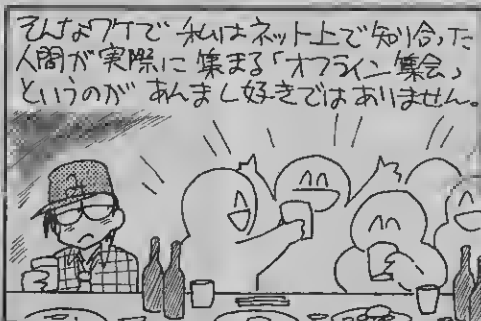 そんなワケで 私はネット上で知り合った
人間が実際に集まる「オフライン集会」
というのが あんまし好きではありません。